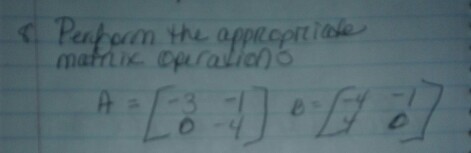 8 Perform the appropriate
matrix operations
A = [-3 -1 B = [-4 -1
0 -4] y 0]